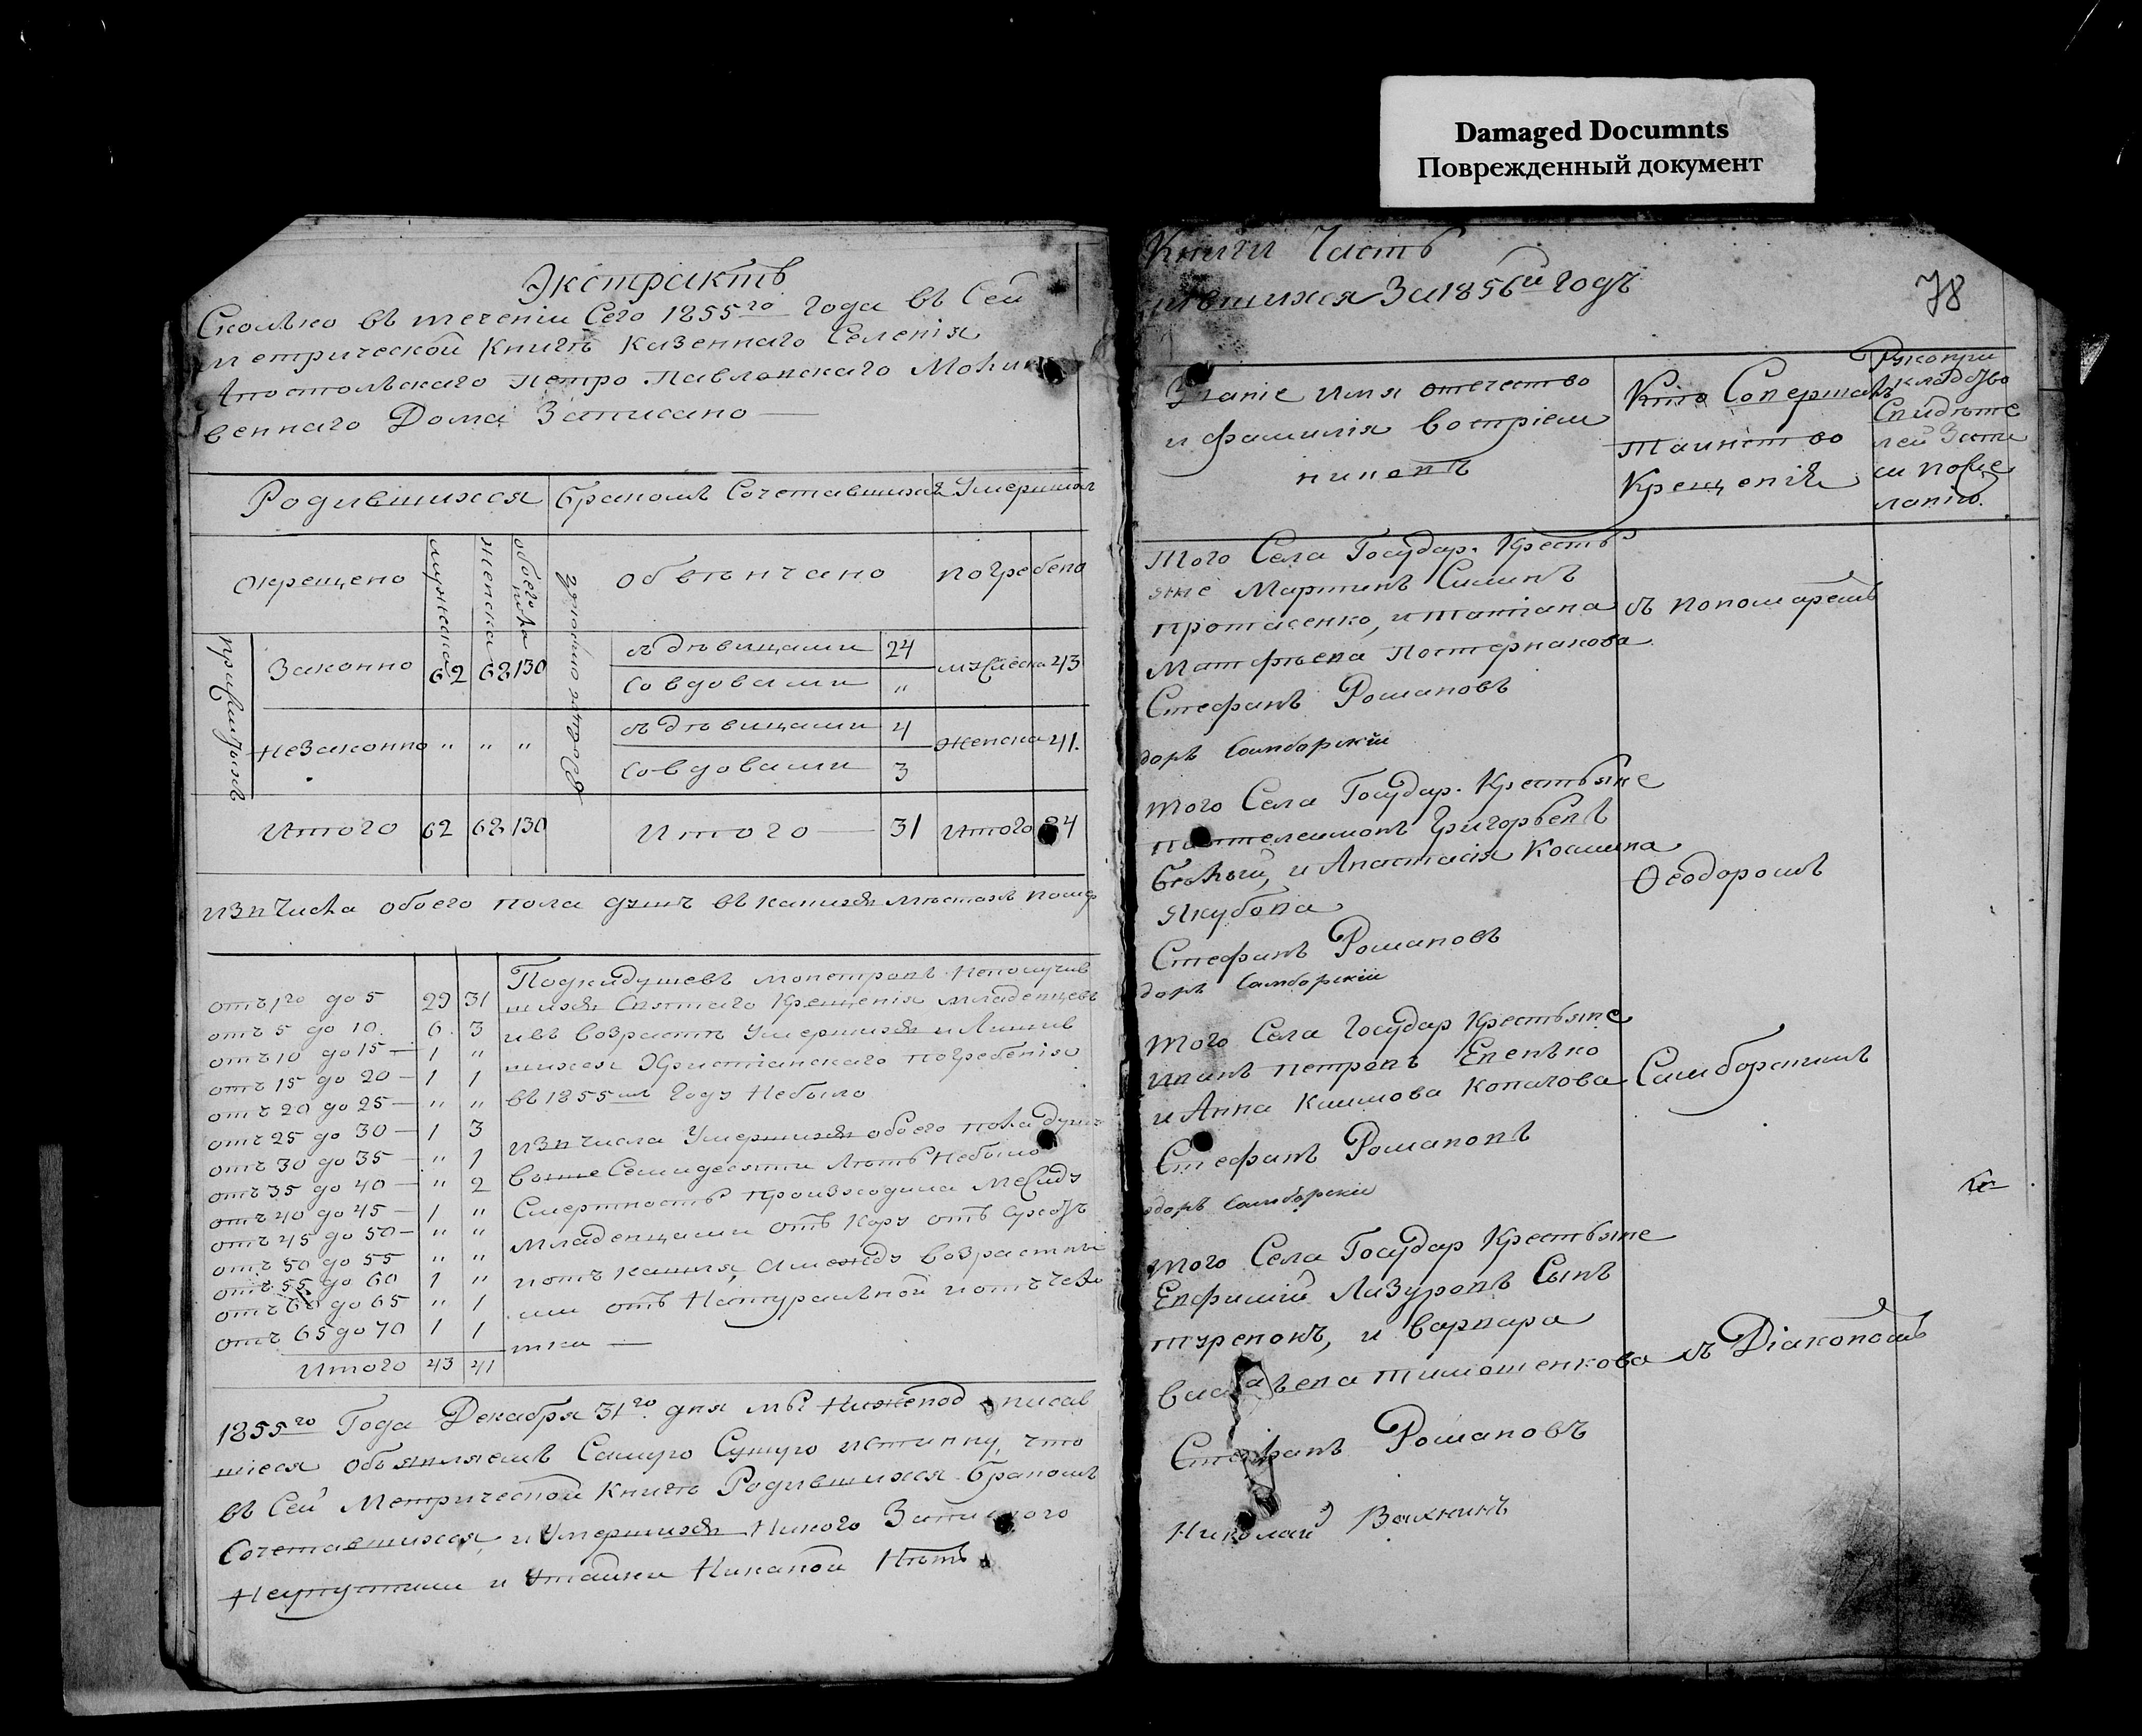 Damaged Documnts
Поврежденный документ
Экстрактъ
Сколько въ теченіи Сего 1855го года въ Сей
метрической Книгѣ Казеннаго Селенія
Апостольскаго Петро Павловскаго Молит
веннаго Дома Записано —
Родившихся Бракомъ Сочетавшихся Умершихъ
Окрещено мужеска женска обоего пола обвѣнчано погребено
Законно 62 68 130 съ дѣвицами 24 мужеска 43
со вдовами "
незаконно " " " съ дѣвицами 4 женска 41.
со вдовами 3
Итого 62 68 130 Итого — 31 Итого 84
изъ Числа обоего пола душъ въ какихъ лѣтахъ помер
отъ 1го до 5 29 31
отъ 5 до 10. 6. 3
отъ 10 до 15 — 1 "
отъ 15 до 20 — 1 1
отъ 20 до 25 — " "
отъ 25 до 30 — 1 3
отъ 30 до 35 — " 1
отъ 35 до 40 — " 2
отъ 40 до 45 — 1 "
отъ 45 до 50 — " "
отъ 50 до 55 " "
отъ 55 до 60 1 "
отъ 60 до 65 " 1
отъ 65 до 70 1 1
Итого 43 41
Подкидушевъ монстровъ неполучив
шихъ Святаго Крещенія младенцевъ
и въ возрастѣ Умершихъ и Лишив
шихся Христіанскаго погребенія
въ 1855мъ Году Небыло
изъ Числа Умершихъ обоего пола душъ
выше Семидесяти Лѣтъ Небыло
Смертность происходила Между
Младенцами отъ Кору отъ
и отъ кашля, а между возрастны
ми отъ Натуральной и отъ Чахо
тки —
1855го Года Декабря 31го. дня мы Нижепод писав
шіеся объявляемъ Самую Сущую истинну, что
въ Сей Метрической Книгѣ Родившихся Бракомъ
Сочетавшихся, и Умершихъ Никого
Неупустили и Утайки Никакой Нѣтъ
Книги Часть
за 1856й годъ
78
Званіе имя отечество
и фамилія воспріем
никовъ
Кто Совершалъ
Таинство
Крещенія
Рукопри
кладство
Свидѣте
лей Запи
си по Же
ланію.
Того Села Государ. Кресть
яне Мартинъ Силинъ
Протасенко, и Татіана
Матфѣева Постернакова
съ Пономаремъ
Стефанъ Романовъ
доръ Самборскій
того Села Государ. Крестьяне
Пантелеимонъ Григорьевъ
Бѣлый, и Анастасія Козмина
Якубова
Ѳеодоромъ
Стефанъ Романовъ
доръ Самборскій
того Села Государ Крестьяне
Иванъ Петровъ
и Анна Климова Копачова
Самборскимъ
Стефанъ Романовъ
одоръ Самборскій
того Села Государ Крестьяне
Евфимій Лазуровъ Сынъ
и Варвара
Тимошенкова
съ Діакономъ
Стефанъ Романовъ
Николай